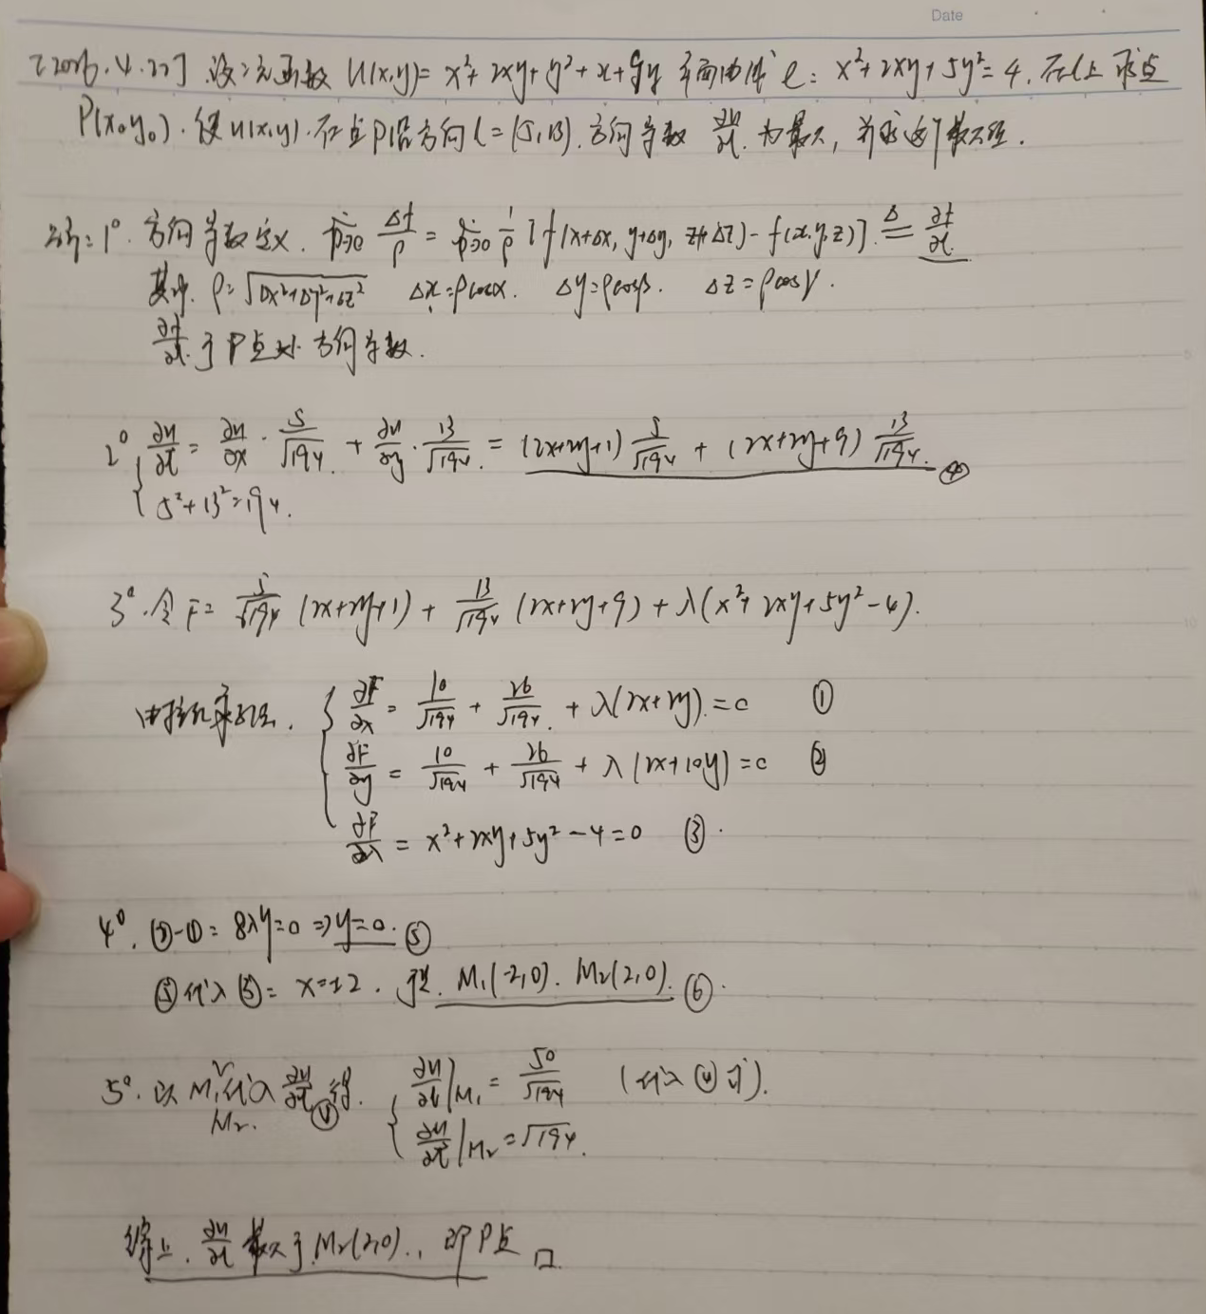 Date
[2026.4.22] 设二元函数 u(x,y)= x²+2xy+y²+x+9y 平面曲线 l: x²+2xy+5y²=4. 在l上求点
P(x₀y₀). 使u(x,y). 在点P沿方向 l=(5,13). 方向导数 ∂u/∂l. 为最大, 并求这个最大值.
解: 1°. 方向导数定义. lim ρ→0 Δf/ρ = lim ρ→0 1/ρ [f(x+Δx, y+Δy, z+Δz)-f(x,y,z)] ≜ ∂f/∂l
其中. ρ=√(Δx²+Δy²+Δz²) Δx=ρcosα. Δy=ρcosβ. Δz=ρcosγ.
∂f/∂l 于P点处方向导数.
2° { ∂u/∂l = ∂u/∂x · 5/√194 + ∂u/∂y · 13/√194 = (2x+2y+1) 5/√194 + (2x+2y+9) 13/√194. ④
5²+13²=194.
3°. 令 F= 5/√194 (2x+2y+1) + 13/√194 (2x+2y+9) + λ(x²+2xy+5y²-4).
由拉氏乘数法. { ∂F/∂x = 10/√194 + 26/√194 + λ(2x+2y)=0 ①
∂F/∂y = 10/√194 + 26/√194 + λ(2x+10y)=0 ②
∂F/∂λ = x²+2xy+5y²-4=0 ③.
4°. ②-①= 8λy=0 ⇒ y=0. ⑤
⑤代入③= x=±2. M₁(-2,0). M₂(2,0). ⑥.
5°. 以 M₁ M₂. 代入 ∂u/∂l ④ 得. { ∂u/∂l|M₁ = 50/√194 (代入④可).
∂u/∂l|M₂ = √194.
综上. ∂u/∂l 最大于 M₂(2,0)., 即P点 □